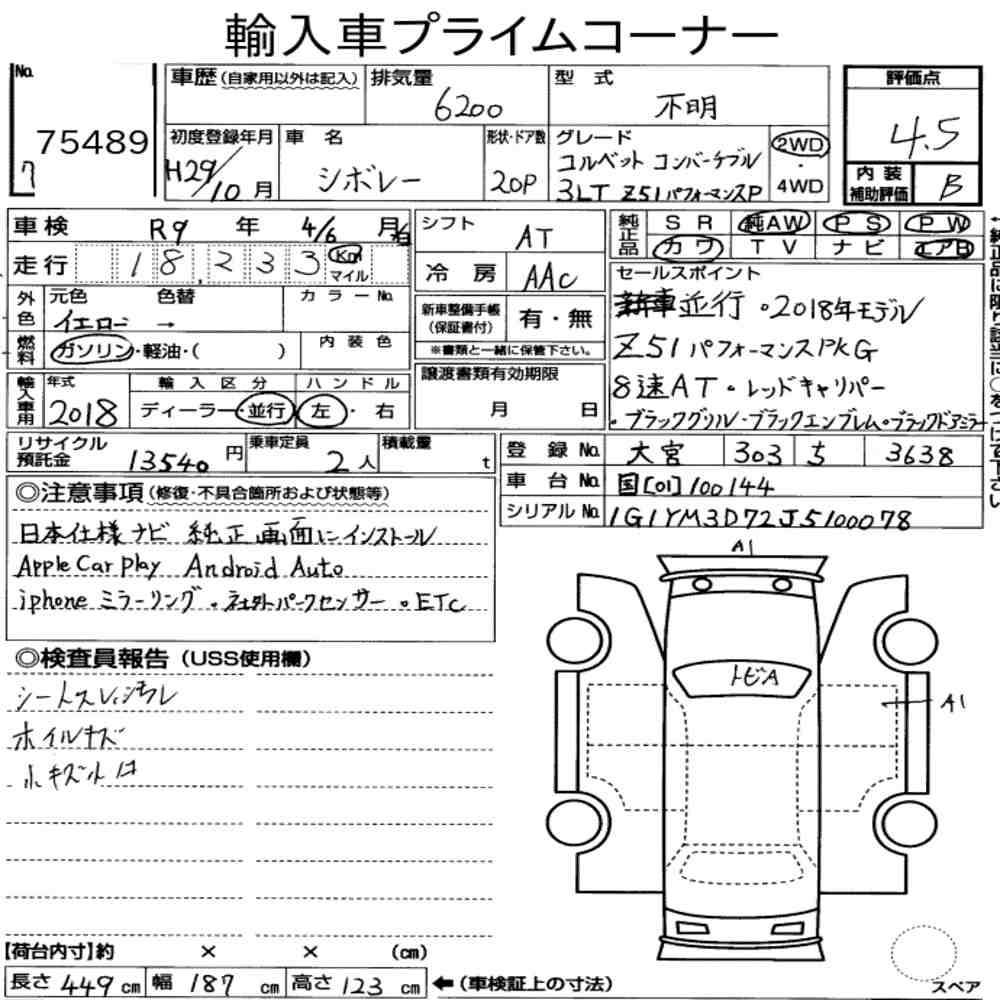 輸入車プライムコーナー
No. 75489
7
車歴 (自家用以外は記入)
排気量 6200
型式 不明
評価点 4.5
初度登録年月 H29/10月
車名 シボレー
形状・ドア数 2OP
グレード コルベット コンバーチブル
3LT Z51パフォーマンスP
2WD・4WD
内装補助評価 B
車検 R9年 4/6月
走行 18,233 Km マイル
シフト AT
冷房 AAC
純正品 SR 純AW PS PW
カワ TV ナビ エアB
外色 元色 色替 カラーNo.
イエロー →
燃料 ガソリン・軽油・( ) 内装色
新車整備手帳(保証書付) 有・無
※書類と一緒に保管下さい。
セールスポイント
新車並行 。2018年モデル
Z51 パフォーマンスPKG
8速AT・レッドキャリパー
・ブラックグリル・ブラックエンブレム。ブラックドアミラー
輸入車用 年式 2018
輸入区分 ディーラー・並行
ハンドル 左・右
譲渡書類有効期限 月 日
リサイクル預託金 13540円
乗車定員 2人
積載量 t
登録No. 大宮 303 5 3638
車台No. 国[01]100144
シリアルNo. 1G1YM3D72J5100078
◎注意事項 (修復・不具合箇所および状態等)
日本仕様ナビ 純正画面にインストール
Apple Car play Android Auto
iphone ミラーリング。社外パークセンサー 。ETC
◎検査員報告 (USS使用欄)
シートスレ、シワ
ホイルキズ
小キズ
A1
トビA
A1
【荷台内寸】約 × × (cm)
長さ 449 cm 幅 187 cm 高さ 123 cm ←(車検証上の寸法)
スペア